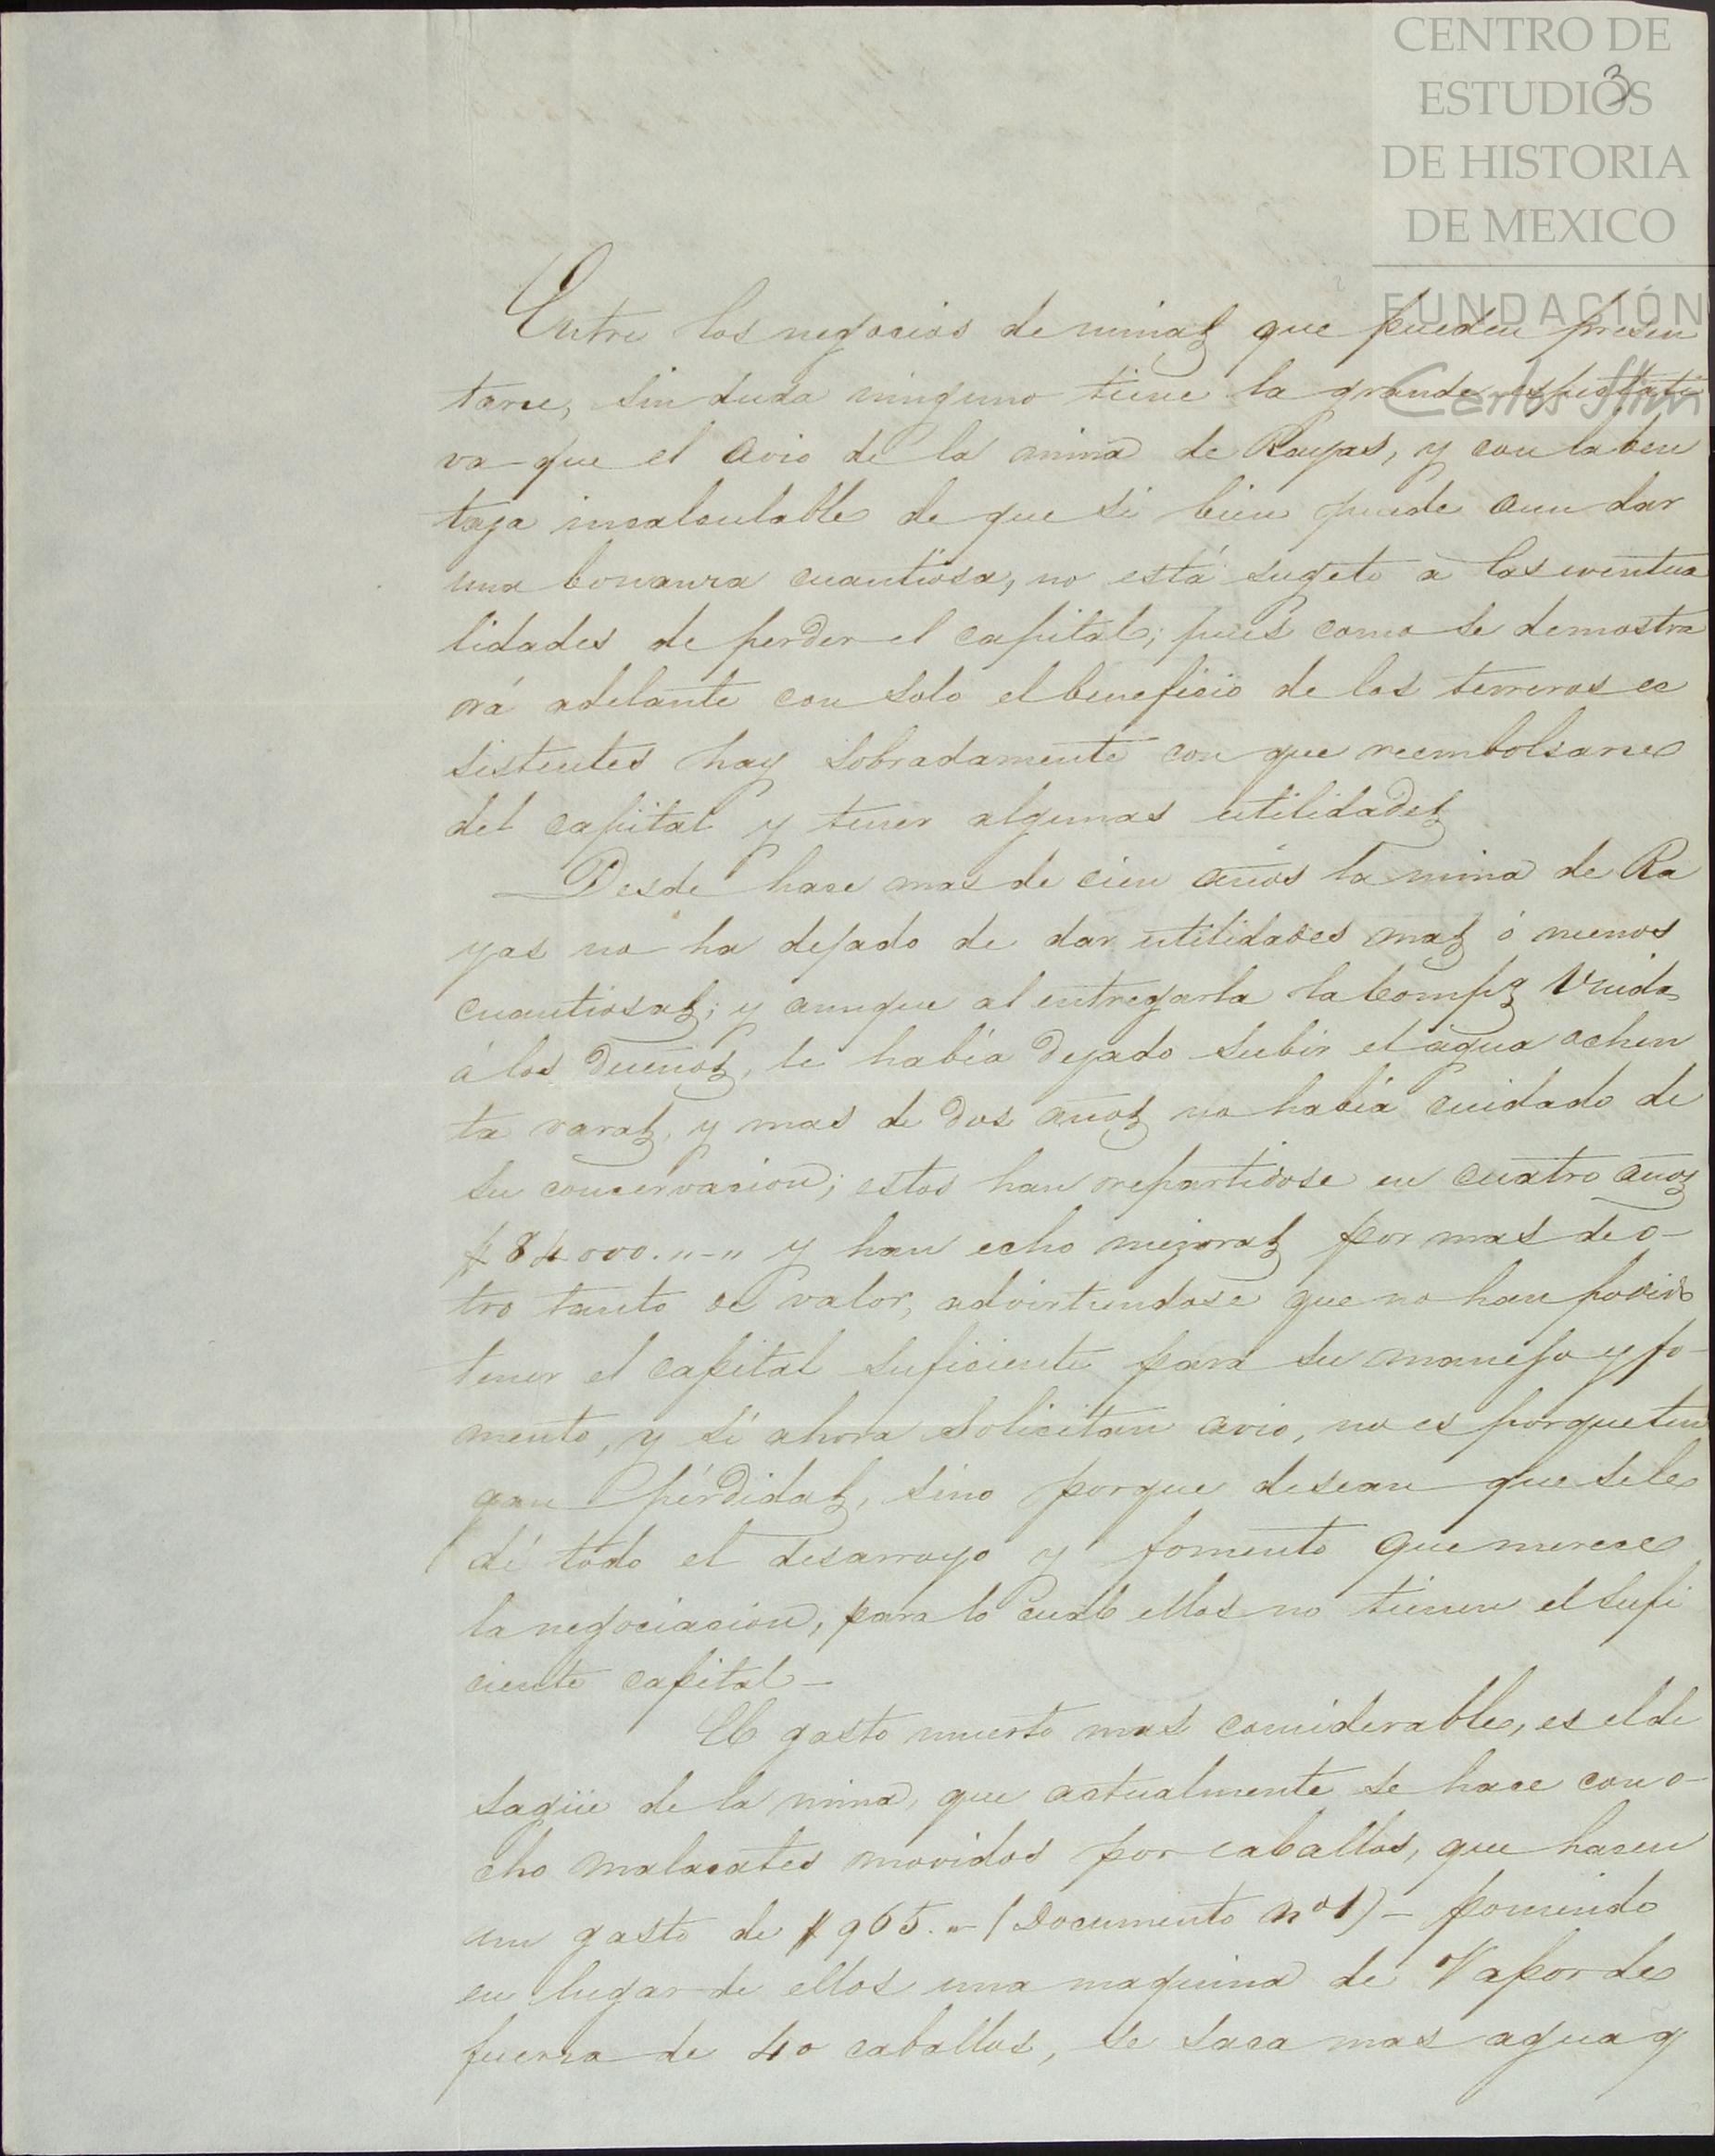 CENTRO DE
ESTUDIOS
DE HISTORIA
DE MEXICO
FUNDACIÓN
Carlos Slim
3
Entre los negocios de minas que pueden presen
tarse, sin duda ninguno tiene la grande espectati
va que el avio de la mina de Rayas, y con la ben
taja incalculable de que si bien puede aun dar
una bonanza cuantiosa, no está sugeto á las eventua
lidades de perder el capital; pues como se demostra
rá adelante con solo el beneficio de los terreros ec
sistentes hay sobradamente con que reembolsarse
del capital y tener algunas utilidades
Desde hace mas de cien años la mina de Ra
yas no ha dejado de dar utilidades mas ó menos
cuantiosas; y aunque al entregarla la Compa Unida
á los dueños, le había dejado subir el agua ochen
ta varas, y mas de dos años no había cuidado de
su conservacion; estos han repartidose en cuatro años
$84000.,,-,, y han echo mejoras por mas de o-
tro tanto de valor, advirtiendose que no han podido
tener el capital suficiente para su manejo y fo-
mento, y si ahora solicitan avio, no es porque ten
gan pérdidas, sino porque desean que se le
dé todo el desarroyo y fomento que merece
la negociacion, para lo cual ellos no tienen el sufi
ciente capital-
El gasto muerto mas considerable, es el de
sagüe de la mina, que actualmente se hace con o-
cho malacates movidos por caballos, que hacen
un gasto de $965.,, (Documento no1)- poniendo
en lugar de ellos una maquina de Vapor de
fuerza de 40 caballos, se saca mas agua y